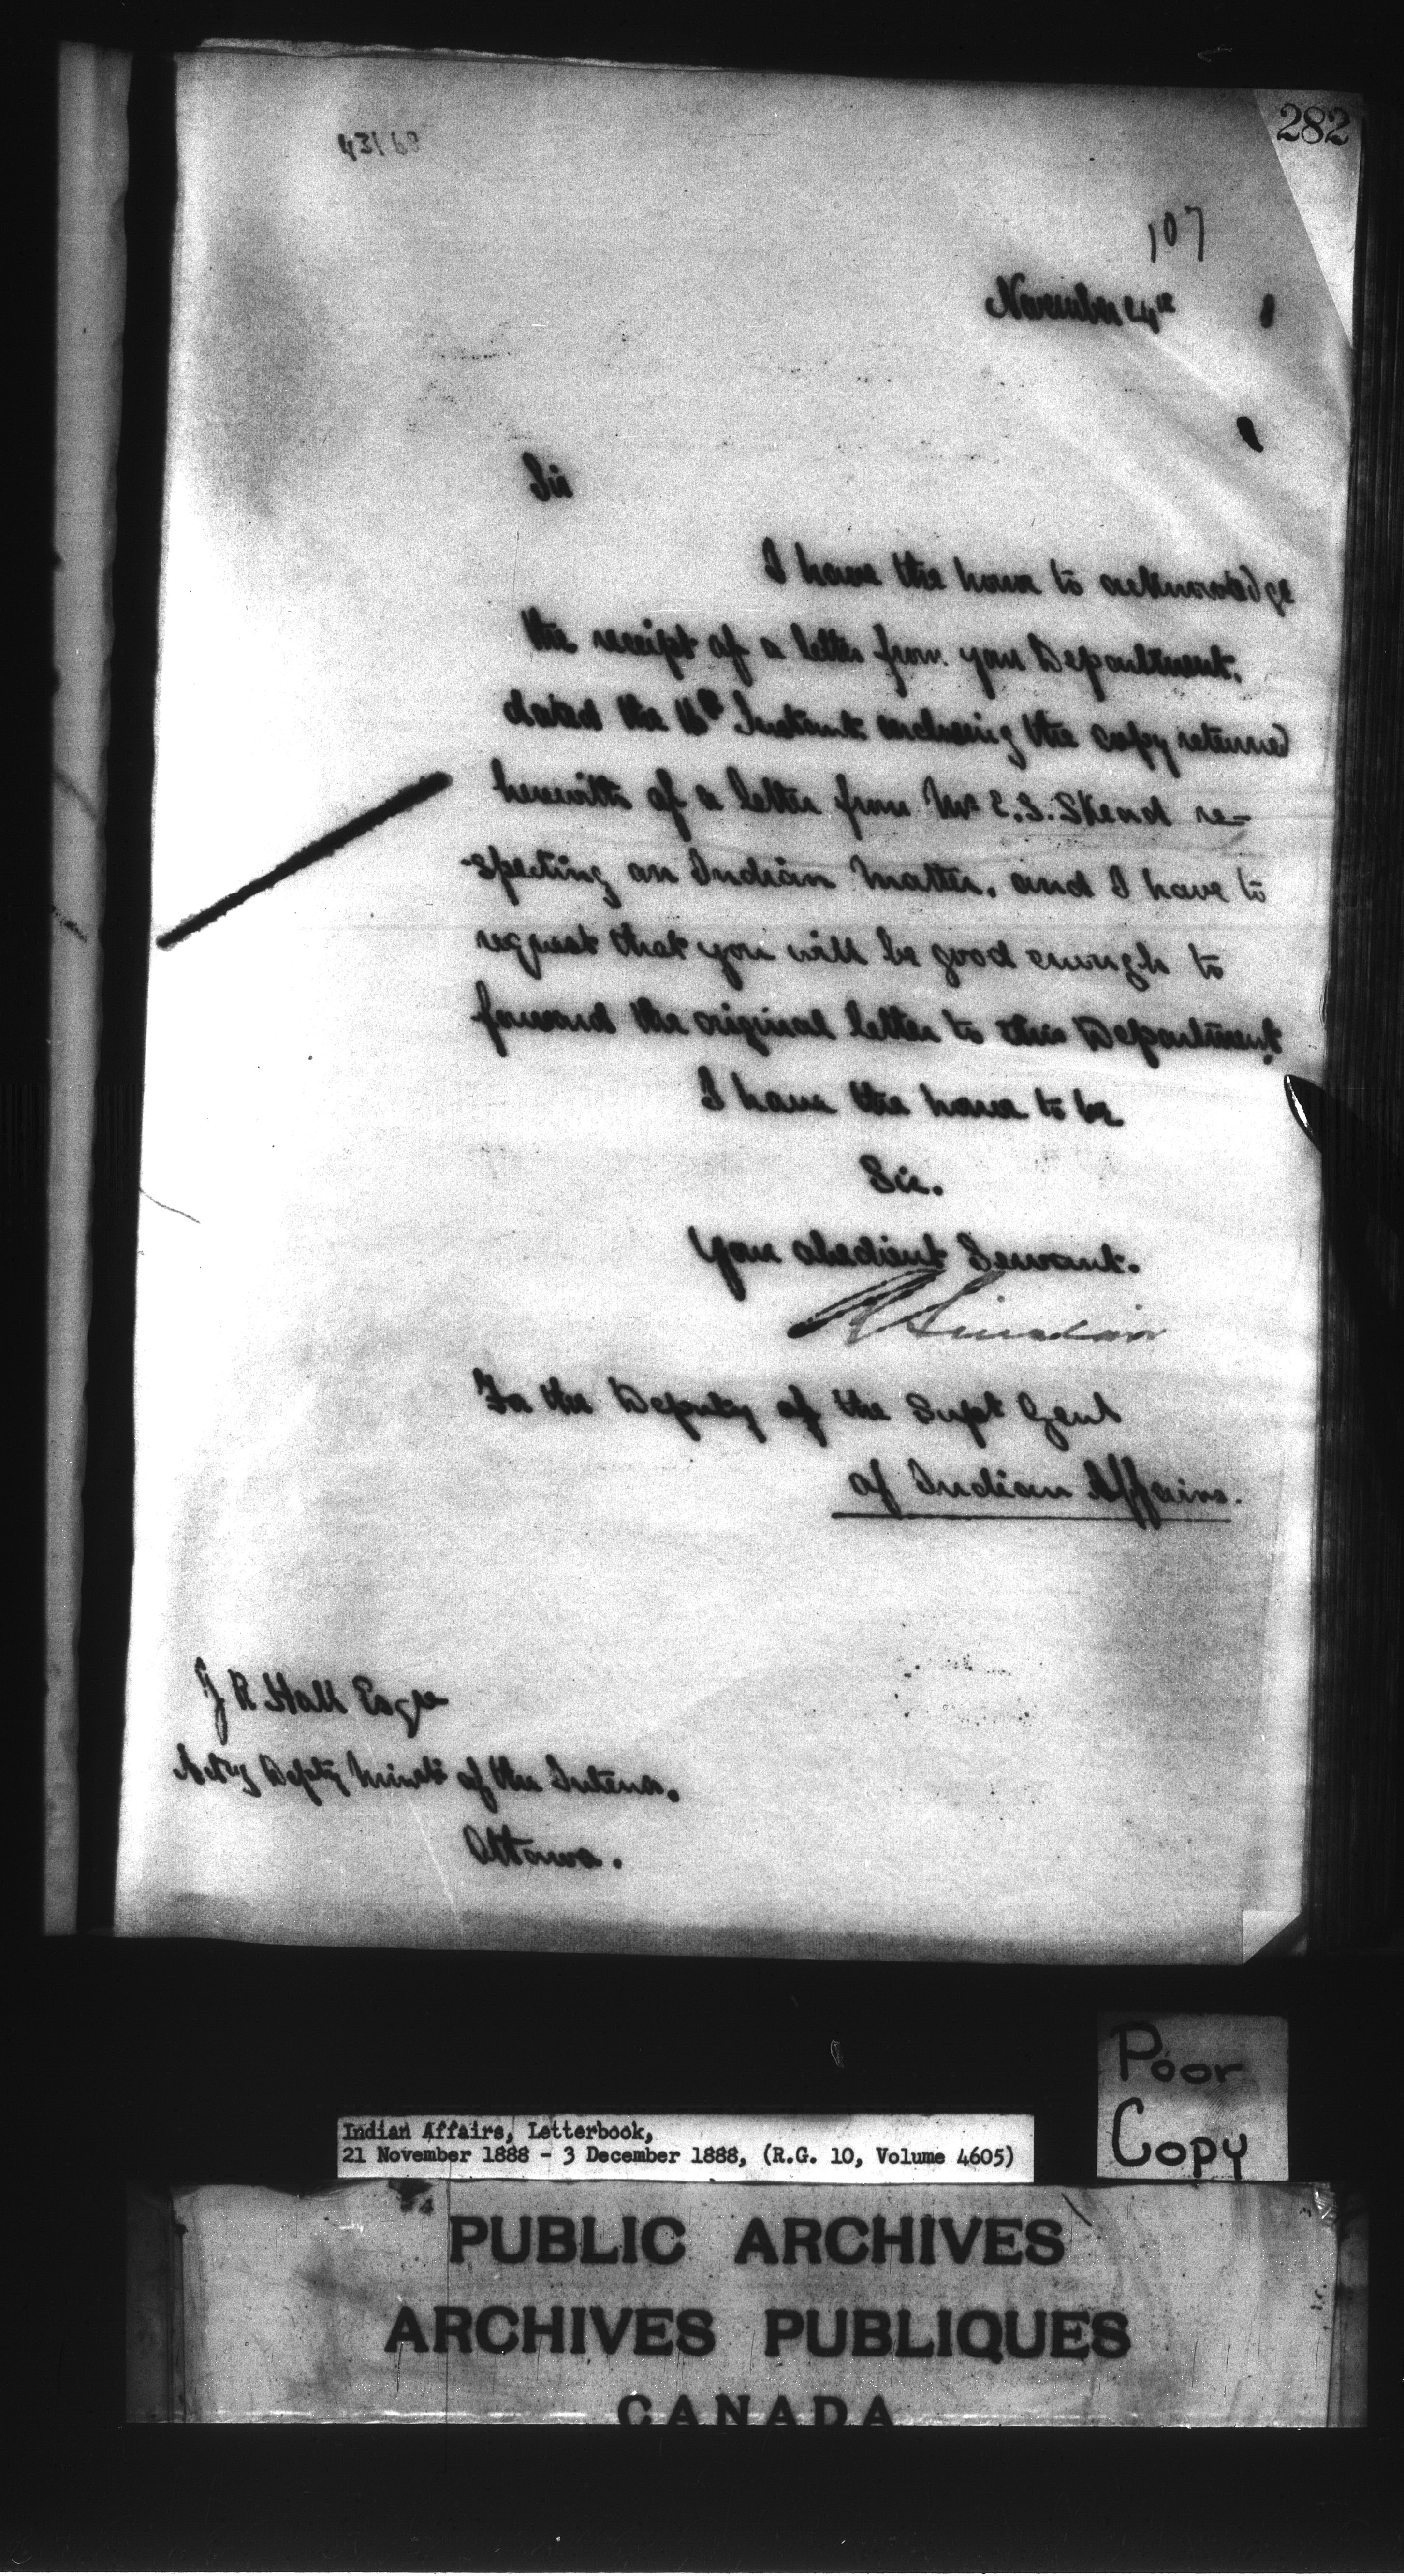 282
107
November 24th
Sir
I have the honor to acknowledge
the receipt of a letter from your Department,
dated the Instant enclosing the copy returned
herewith of a letter from Mr E. S. Skead re-
-specting an Indian Matter, and I have to
request that you will be good enough to
forward the original letter to this Department.
I have the honor to be
Sir.
Your obedient Servant.
R Sinclair
For the Deputy of the Supt Genl
of Indian Affairs.
J R Hall Esqre
Actg Depty Minstr of the Interior.
Ottawa.
Poor
Copy
Indian Affairs, Letterbook,
21 November 1888 - 3 December 1888, (R.G. 10, Volume 4605)
PUBLIC ARCHIVES
ARCHIVES PUBLIQUES
CANADA